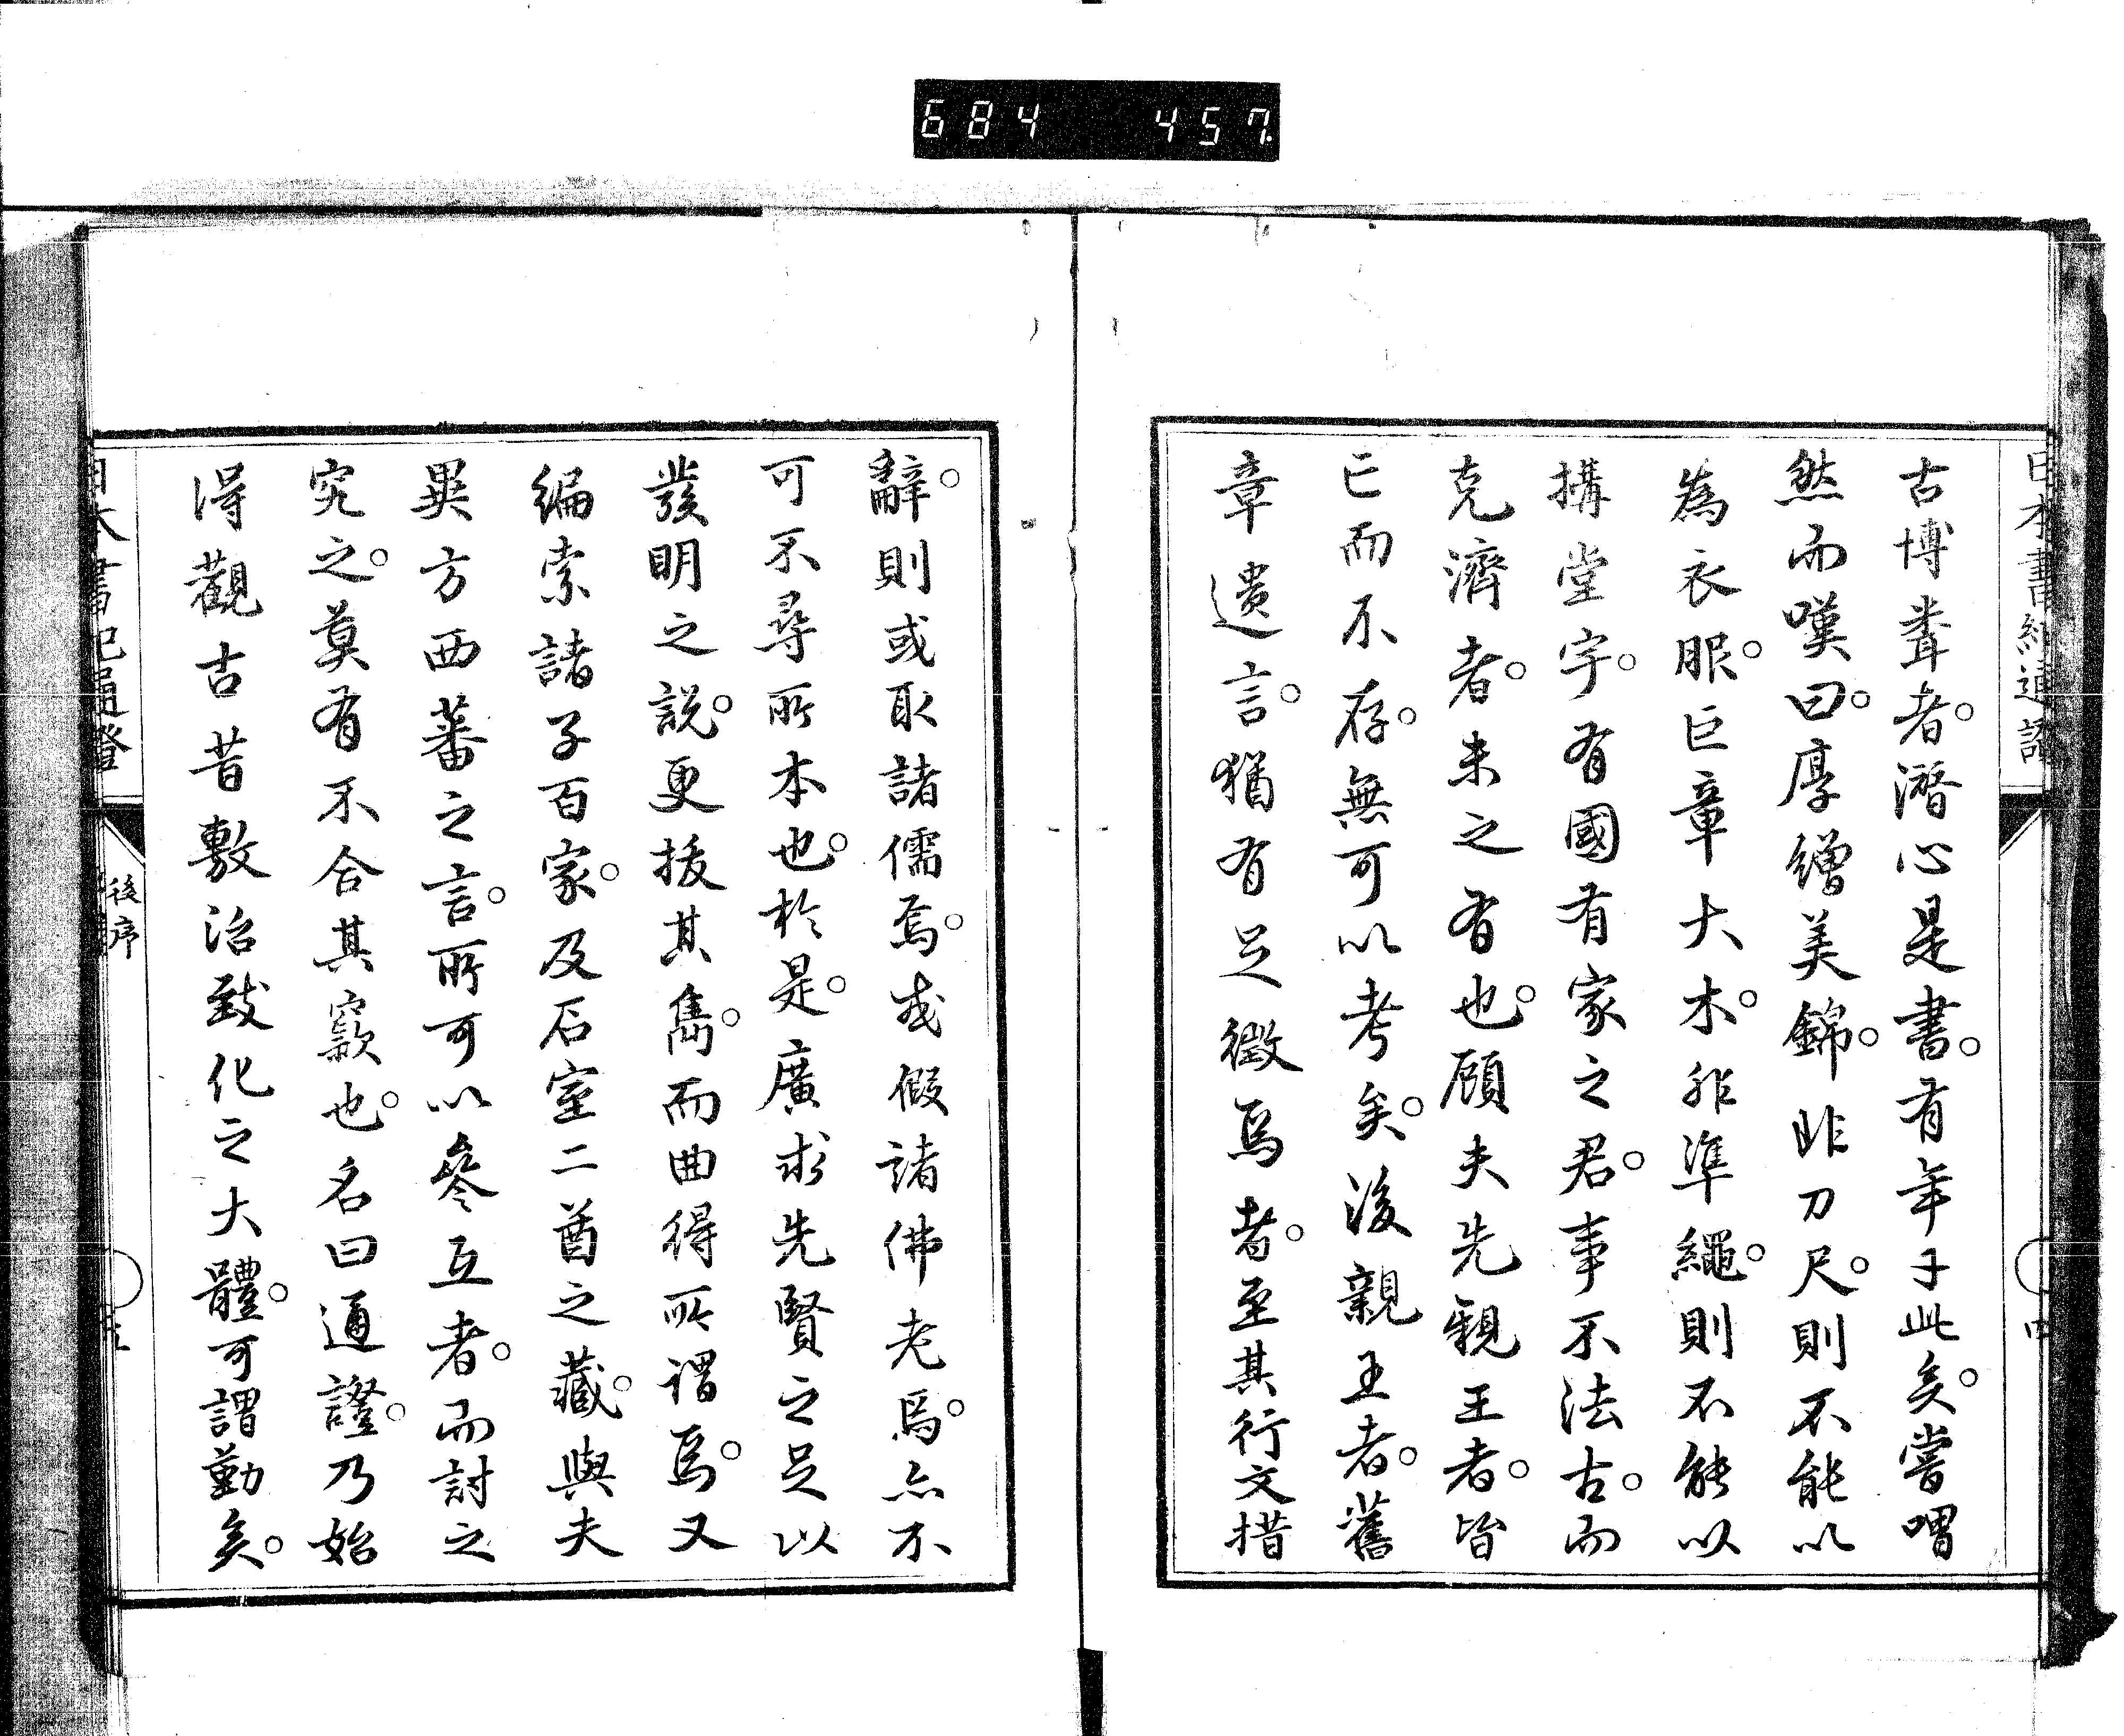 684 457
日本書紀通證
古博聳者。潛心是書。有年于此矣。嘗喟
然而嘆曰。厚繒美錦。非刀尺。則不能以
為衣服。巨章大木。非準繩。則不能以
搆堂宇。有國有家之君。事不法古。而
克濟者。未之有也。顧夫先親王者。皆
亡而不存。無可以考矣。後親王者。舊
章遺言。猶有足徵焉者。至其行文措
辭。則或取諸儒焉。或假諸佛老焉。亦不
可不尋所本也。於是。廣求先賢之足以
發明之說。更拔其雋。而曲得所謂焉。又
編索諸子百家。及石室二酋之藏。與夫
異方西蕃之言。所可以參互者。而討之
究之。莫有不合其窾也。名曰通證。乃始
得觀古昔敷治致化之大體。可謂勤矣。
日本書紀通證
後序